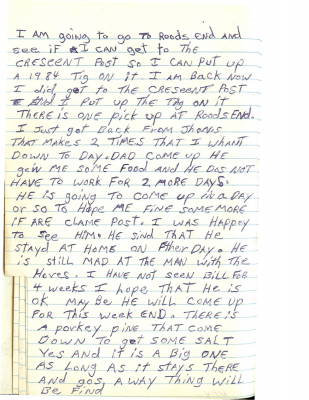 I AM going to go To Roods End And
see if I CAN get to The
CRESCENT Post So I CAN Put up
a 1984 Tig on it I AM Back Now
I did, got to the CRESCENT POST
And I Put up The TAg on it
THERE is one Pick up AT RoodsEnd.
I Just got Back From Jhons
THAT MAKES 2 TIMES THAT I WHANT
DOWN To DAY. DAD COME UP HE
gave ME SOME Food And HE Dos NOT
HAVE TO WORK FOR 2 MORE DAYS.
HE is going TO COME up in a DAy
or so To Hope ME Fine SOME MORE
IF ARE CLAME POST. I WAS HAppey
To See HIM. HE Sind THAT HE
stayd AT HOME ON FTher DAY. HE
is still MAD AT THE MAN with the
Hores. I HAVE NOT SEEN BILL FOR
4 weeks I hope THAT HE is
ok MAY Be HE WILL COME up
FOR This week END. THERE is
A porkey pine THAT COME
DOWN To get SOME SALT
Yes And it is A Big ONE
As LONg As it STAYS THERE
AND gos, A WAY Thing WILL
Be FinE